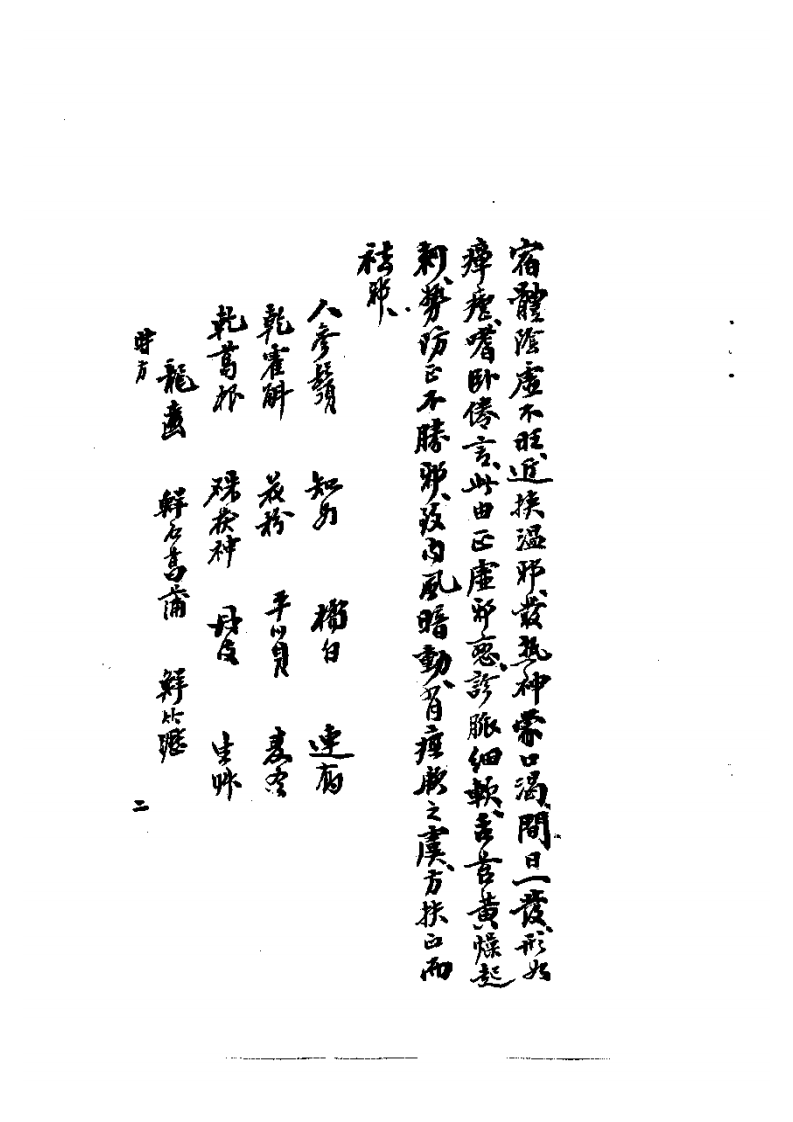 宿體陰虛不旺、近挾溫邪、發熱神蒙口渴、間日一發、形如
瘴瘧、嗜卧倦言、此由正虛邪戀、診脈細軟、舌苔黃燥起
刺、勢防正不勝邪、致內風暗動、有痙厥之虞、方扶正而
祛邪、
人參鬚 知母 橘白 連翹
乾霍斛 花粉 平川貝 麦冬
乾葛根 硃茯神 丹皮 生草
龍齒 鮮石菖蒲 鮮竹瀝
時方 二